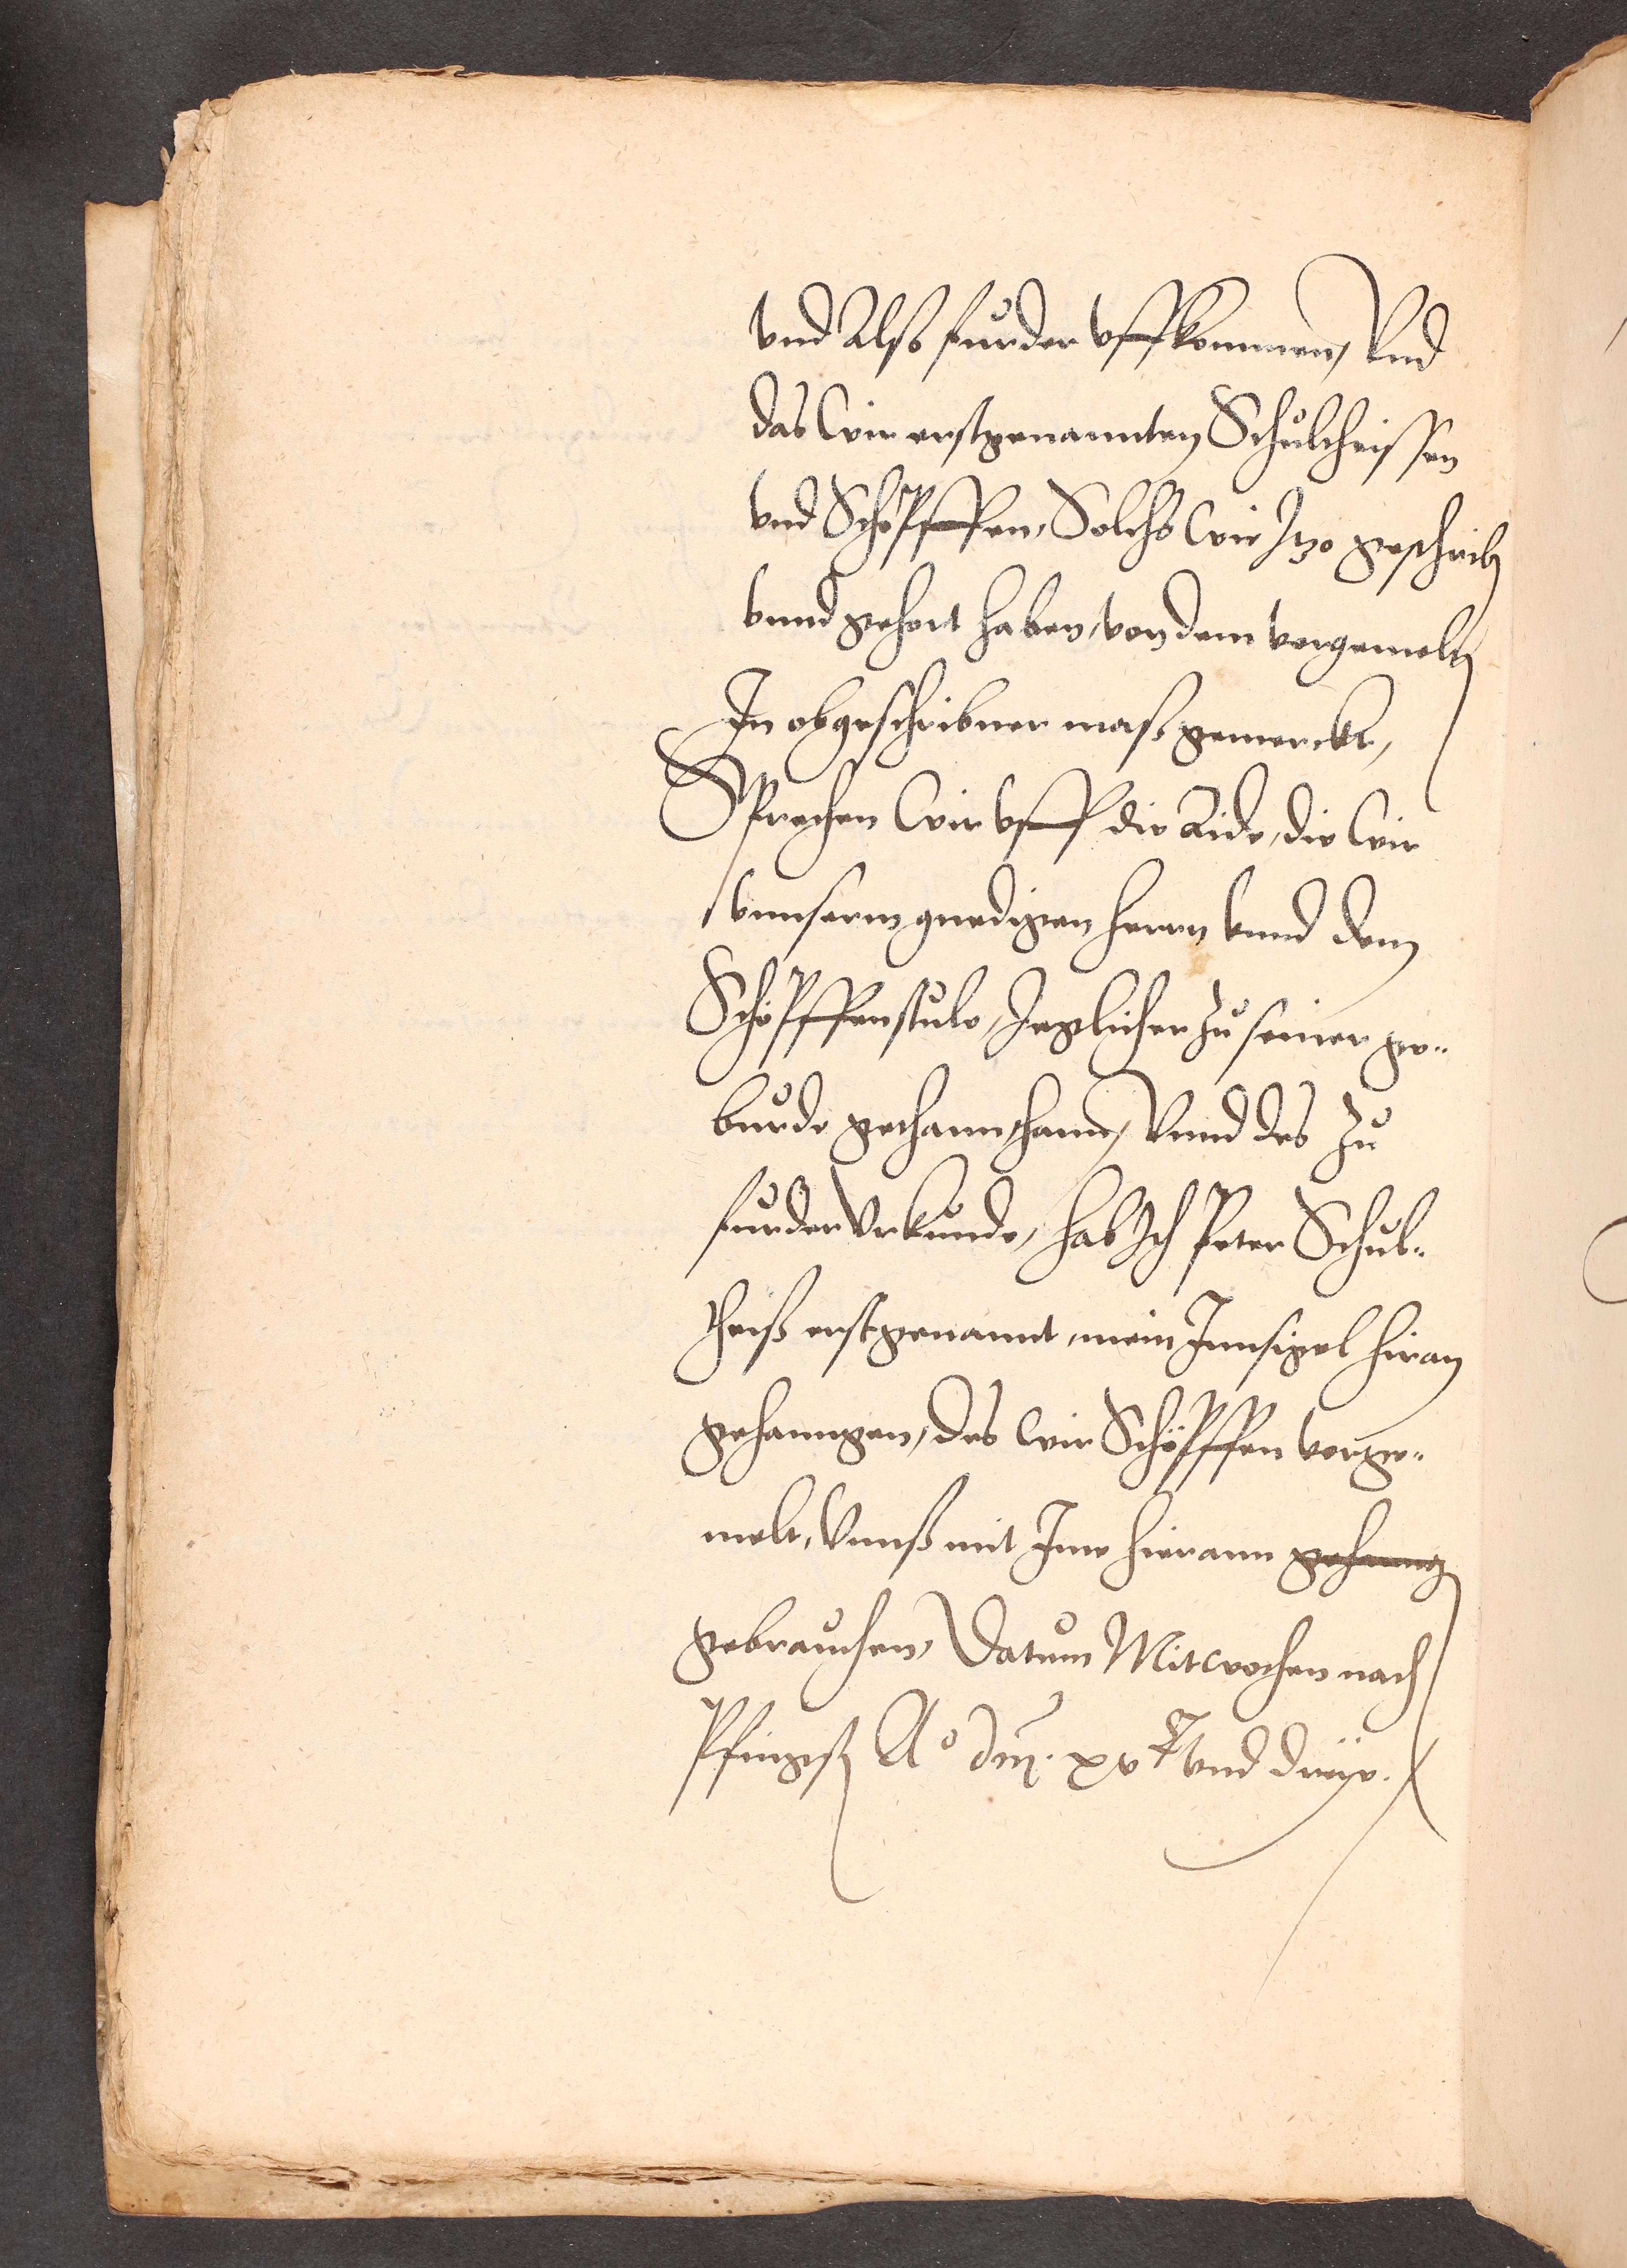 vnd Alß furder vffkommen, Vnd
das Wir erstgenannten Schultheissen
vnd Schöpffen, Solchs wie Itzo geschriben
vnnd gehort haben, von dem vorgemelten
In obgeschribner maß gemerckt,
Sprechen Wir vff die Aide, die Wir
vnnserm gnedigen herrn vnnd dem
Schöpffenstule, Jeglicher zu seiner ge„
burde gethann hann, Vnnd des zu
furder Vrkunde, hab Ich Peter Schul„
theiß erstgenannt, mein Innsigel hiran
gehanngen, des wir Schöpffen vorge„
melt, Vnnß mit Ime hierann gehanng
gebrauchen, Datum Mitwochen nach
Pfingsten Ao dm̄. xvᶜ vnd dreÿe.